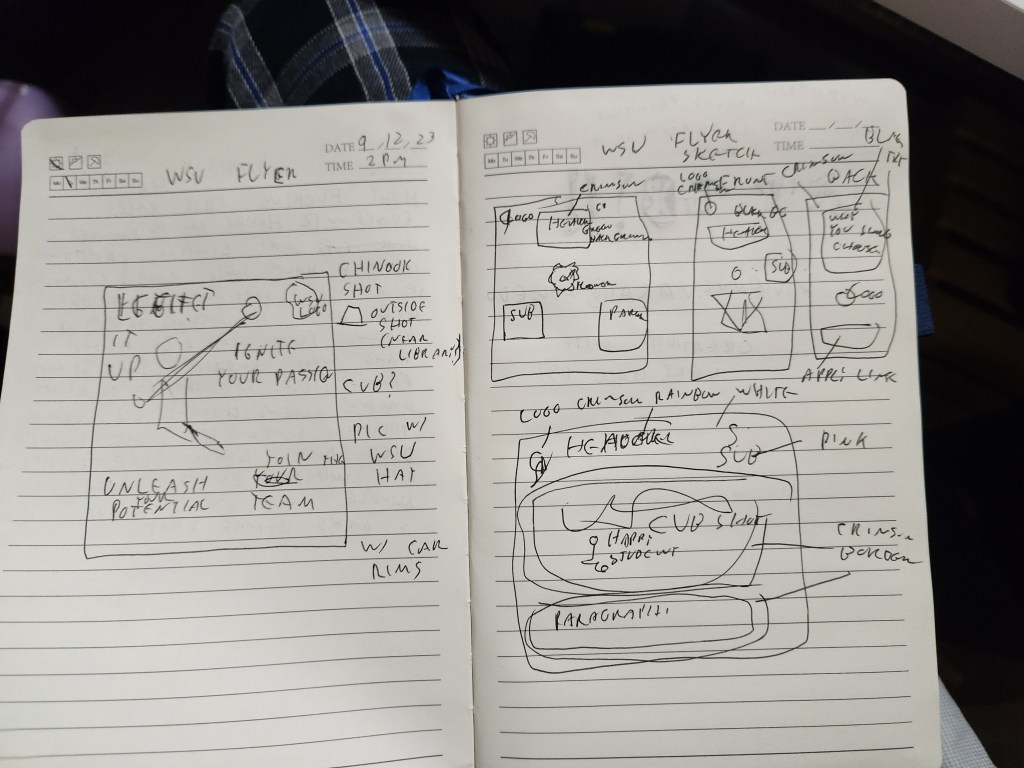 DATE 9, 12, 23
TIME 2 PM
Mo Tu We Th Fr Sa Su
WSU FLYER
CHINOOK
SHOT
OUTSIDE
SHOT
(NEAR
LIBRARY)
CUB?
PIC W/
WSU
HAT
W/ CAR
RIMS
IT
UP
WSU
LOGO
IGNITE
YOUR PASSIO
UNLEASH
YOUR
POTENTIAL
JOIN THE
TEAM
Mo Tu We Th Fr Sa Su
WSU FLYER
SKETCH
DATE __/__/__
TIME
CRIMSON
LOGO
HEADER
SUB
PARA
LOGO
CRIMSON
FRONT
HEADER
SUB
CRIMSON
BACK
WHY
YOU SHOULD
CHOOSE
LOGO
APPLY LINK
LOGO CRIMSON RAINBOW WHITE
HEADER
S
SUB
PINK
CUB SHOT
HAPPY
STUDENT
CRIMSON
BORDER
PARAGRAPH